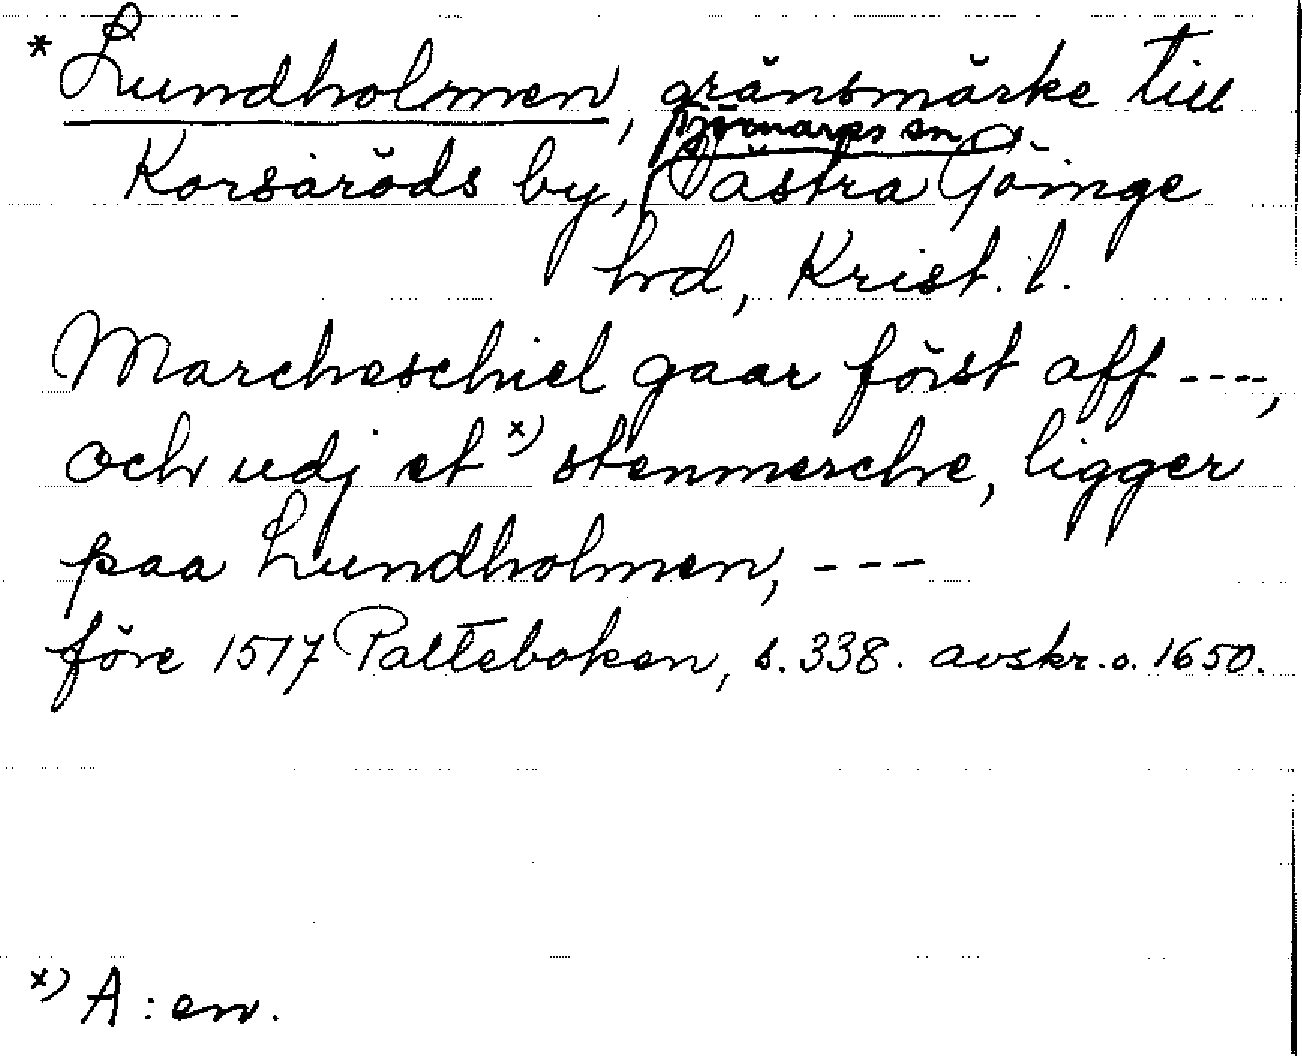 * Lundholmen, gränsmärke till
Korsaröds by, Fjärmarps sn Västra Göinge
hrd, Krist. l.
Marcheschiel gaar först aff ----,
och udj et x) stenmerche, ligger
paa Lundholmen, ---
före 1517 Palteboken, s. 338. avskr. o. 1650.
x) A : en.